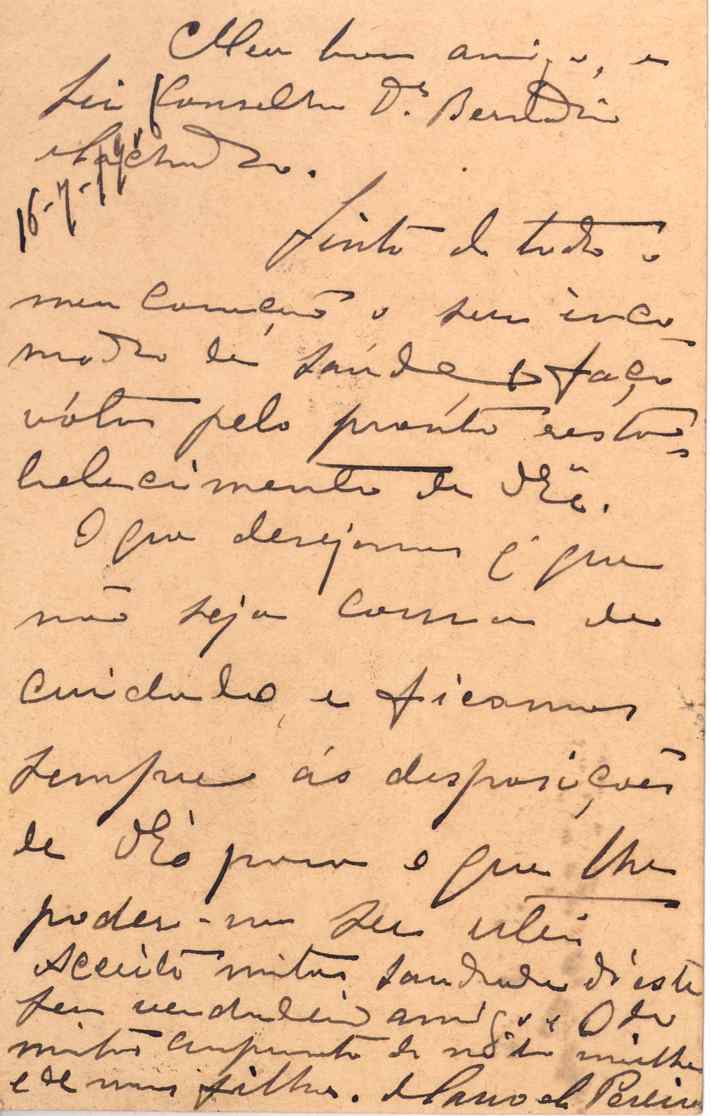 Meu bom amigo, e
Sr. Conselhro Dr. Bernardino
Machado.
16-7-14
Sinto de todo o
meu coração o seu inco
modo de saúde, e faço
vótos pelo pronto resta
belecimento de VExa.
O que desejamos é que
não seja cousa de
cuidado, e ficamos
sempre ás desposições
de VExa para o que lhe
poder-mos ser uteis
Acceite muitas saudades d'este
seu verdadeiro amigo e Odo
muitos de minha mulher
e de meus filhos. Manoel Pereira